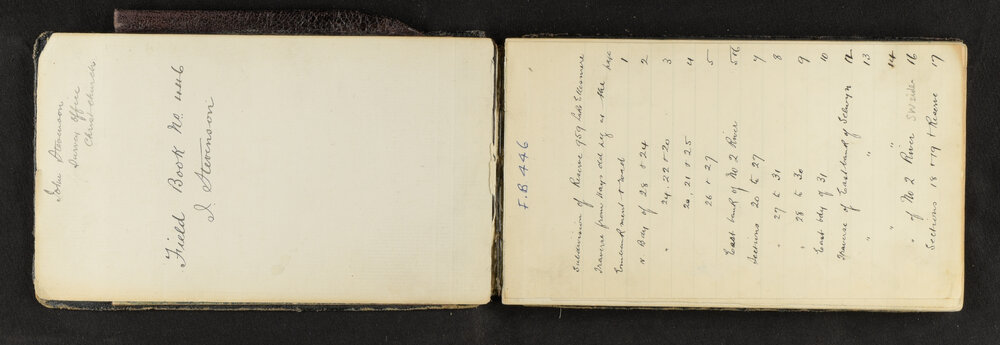 John Stevenson
Survey Office
Christchurch
Field Book No. 446
J. Stevenson
F.B 446
Subdivision of Reserve 959 Lake Ellesmere
Traverse from Hays old peg at the Page
Embankment + road 1
+ Bdy of 28 + 24 2
" 24, 22 + 20 3
20, 21 + 25 4
26 + 27 5
East bank of No 2 River 5+6
Sections 20 to 27 7
" 27 to 31 8
" 28 to 30 9
East bdy of 31 10
Traverse of East bank of Selwyn 12
" " 13
" " 14
" of No 2 River SW side 16
Sections 18 + 19 + Reserve 17